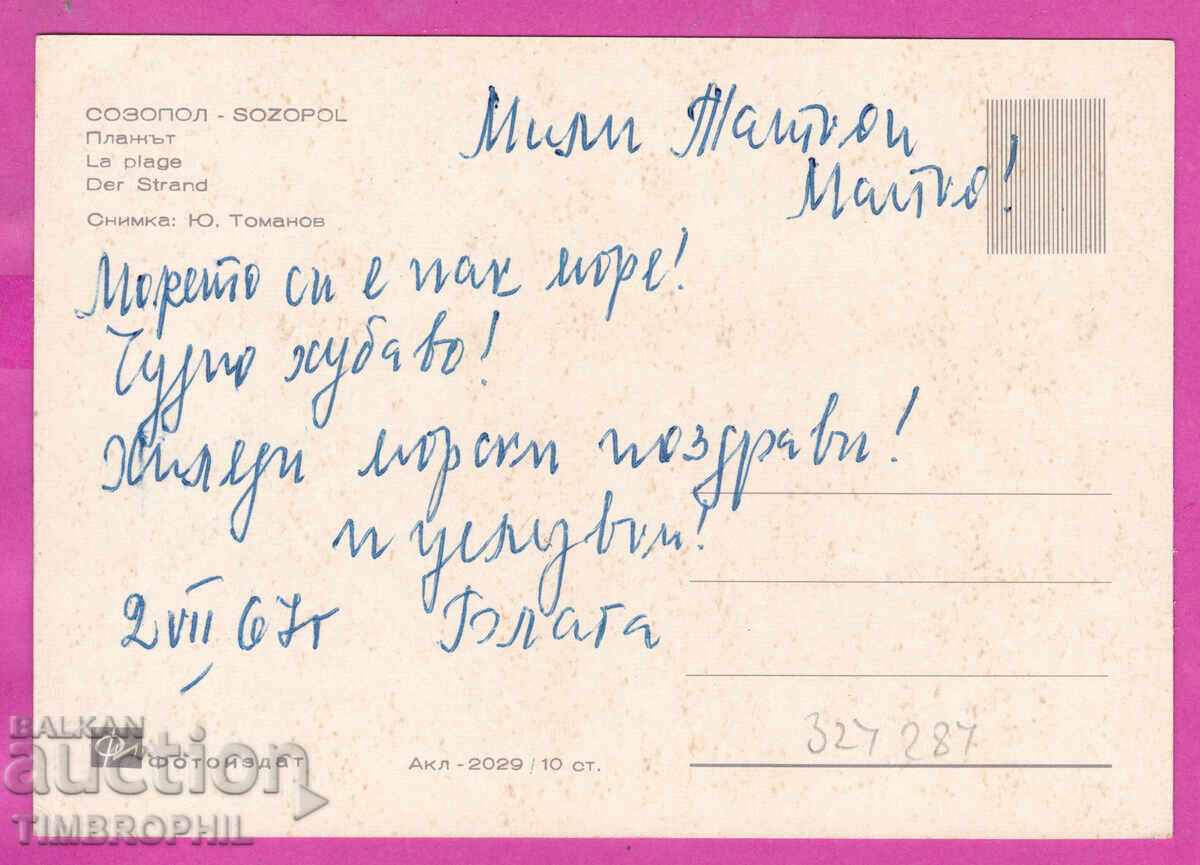 СОЗОПОЛ - SOZOPOL
Плажът
La plage
Der Strand
Снимка: Ю. Томанов
Мили Татко и
Майко!
Морето си е пак море!
Чудно хубаво!
Хиляди морски поздрави!
и целувки!
2 VII 67г Благa
Фотоиздат
Акл - 2029 / 10 ст.
327 287
BALKAN
auction
TIMBROPHIL